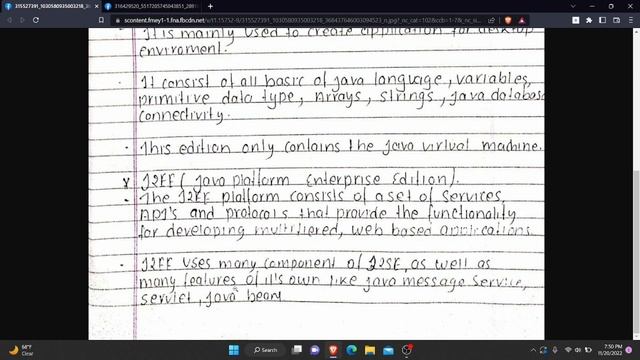 315527391_1030580935003218_368
316429520_551720574504385​1_2881
scontent.fmey1-1.fna.fbcdn.net/v/t1.15752-9/315527391_1030580935003218_3684376460030​94523_n.jpg?_nc_cat=102&ccb=1-7&_nc_si
It is mainly used to create application for desktop
enviroment.
It consist of all basic of Java language, variables,
primitive data type, Arrays, strings, java database
connectivity.
This edition only contains the java virtual machine.
J2EE ( Java platform Enterprise Edition).
The J2EE platform consists of a set of services,
API's and protocols that provide the functionality
for developing multitiered, web based applications.
J2EE uses many component of J2SE, as well as
many features of it's own like java message service,
servlet, java bean
64°F
Clear
Search
7:50 PM
11/20/2022